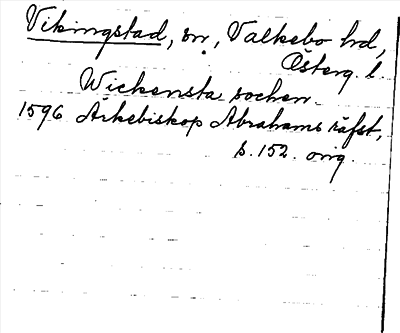 Vikingstad, sn, Valkebo hd,
Österg. l.
Wickensta sochen
1596 Ärkebiskop Abrahams räfst,
s. 152. orig.